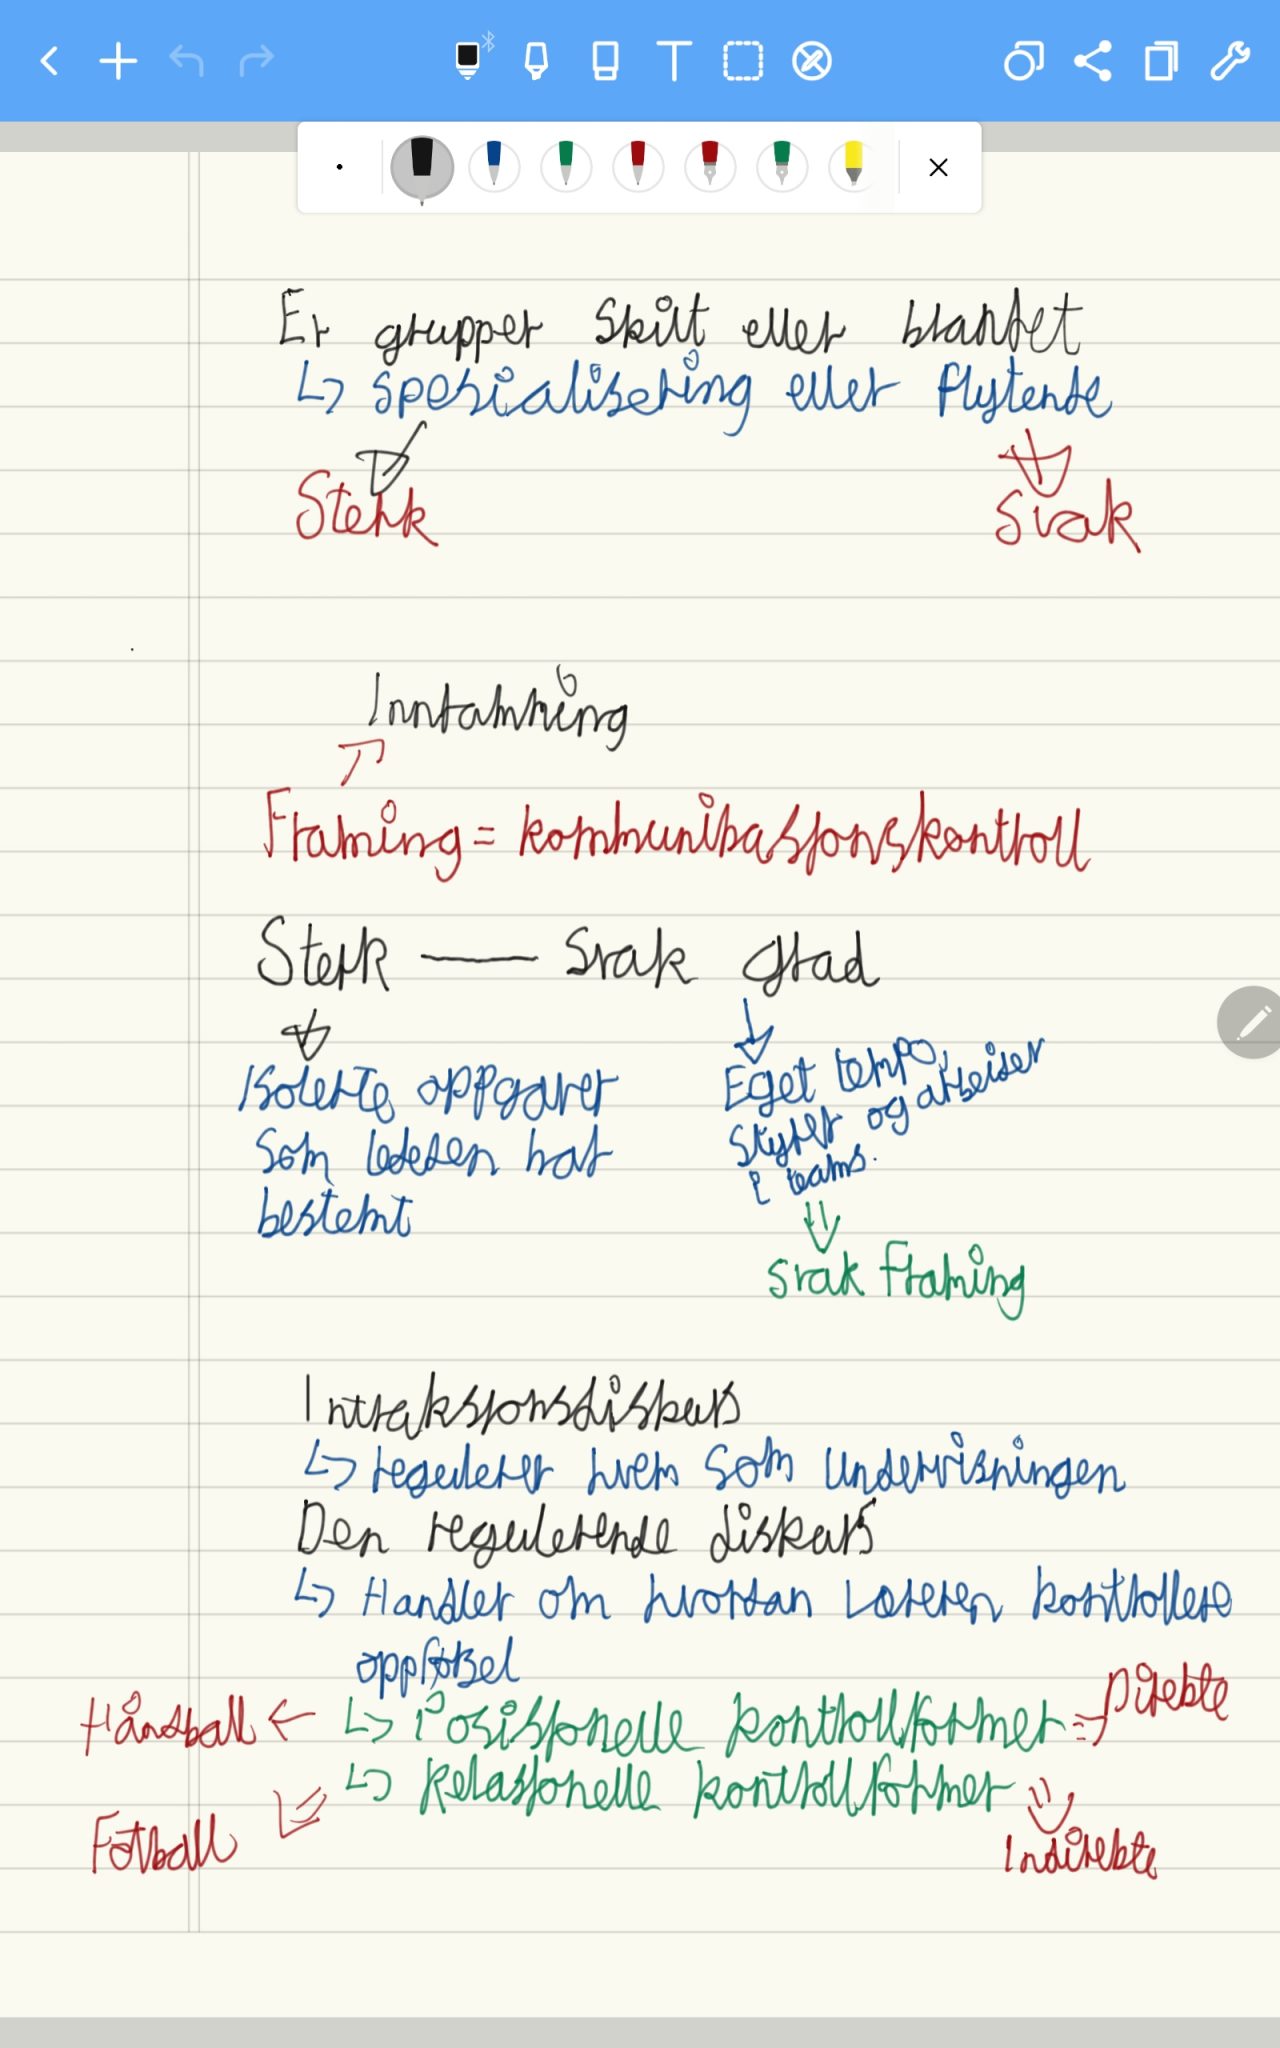 Er grupper skilt eller blandet
↳ spesialisering eller flytende
Sterk
Svak
Innramming
Framing = kommunikasjonskontroll
Sterk — Svak grad
Isolerte oppgaver
som lederen har
bestemt
Eget tempo,
styrer og arbeider
i teams.
svak framing
Intraksjonsdiskurs
↳ regulerer hvem som undervisningen
Den regulerende diskurs
↳ Handler om hvordan læreren kontrollere
oppførsel
Håndball ← ↳ Posisjonelle kontrollformer => Direkte
↳ Relasjonelle kontrollformer
Fotball
Indirekte